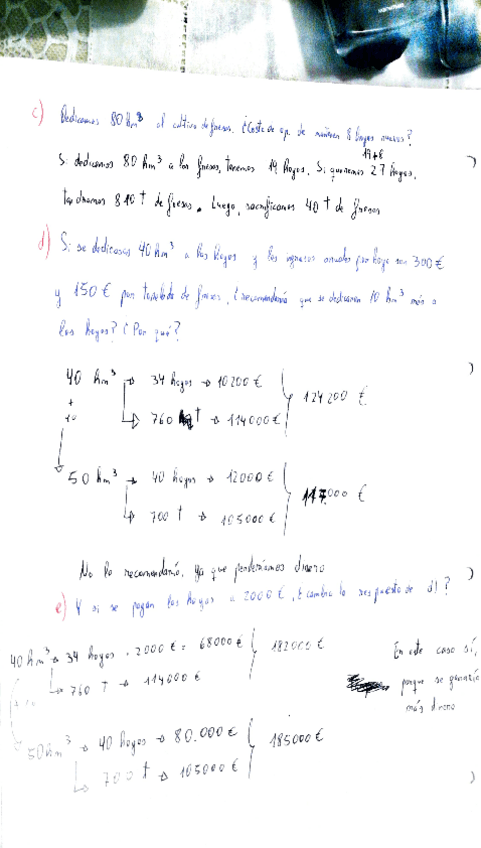 c) Dedicamos 80 hm³ al cultivo de fresas. ¿Coste de op. de mantener 8 hayas nuevas?
19+8
Si dedicamos 80 hm³ a las fresas, tenemos 19 hayas. Si queremos 27 hayas,
tendríamos 810 t de fresas. Luego, sacrificamos 40 t de fresas
d) Si se dedicasen 40 hm³ a las hayas y los ingresos anuales por haya son 300 €
y 150 € por tonelada de fresas, ¿recomendaría que se dedicaran 10 hm³ más a
las hayas? ¿Por qué?
40 hm³ → 34 hayas → 10200 €
+
10
→ 760 t → 114000 €
124200 €
50 hm³ → 40 hayas → 12000 €
→ 700 t → 105000 €
117.000 €
No lo recomendaría, ya que perderíamos dinero
e) Y si se pagan las hayas a 2000 €, ¿cambia la respuesta de d)?
40 hm³ → 34 hayas · 2000 € = 68000 €
→ 760 t → 114000 €
182000 €
En este caso sí,
porque se ganaría
más dinero
50 hm³ → 40 hayas → 80.000 €
→ 700 t → 105000 €
185000 €